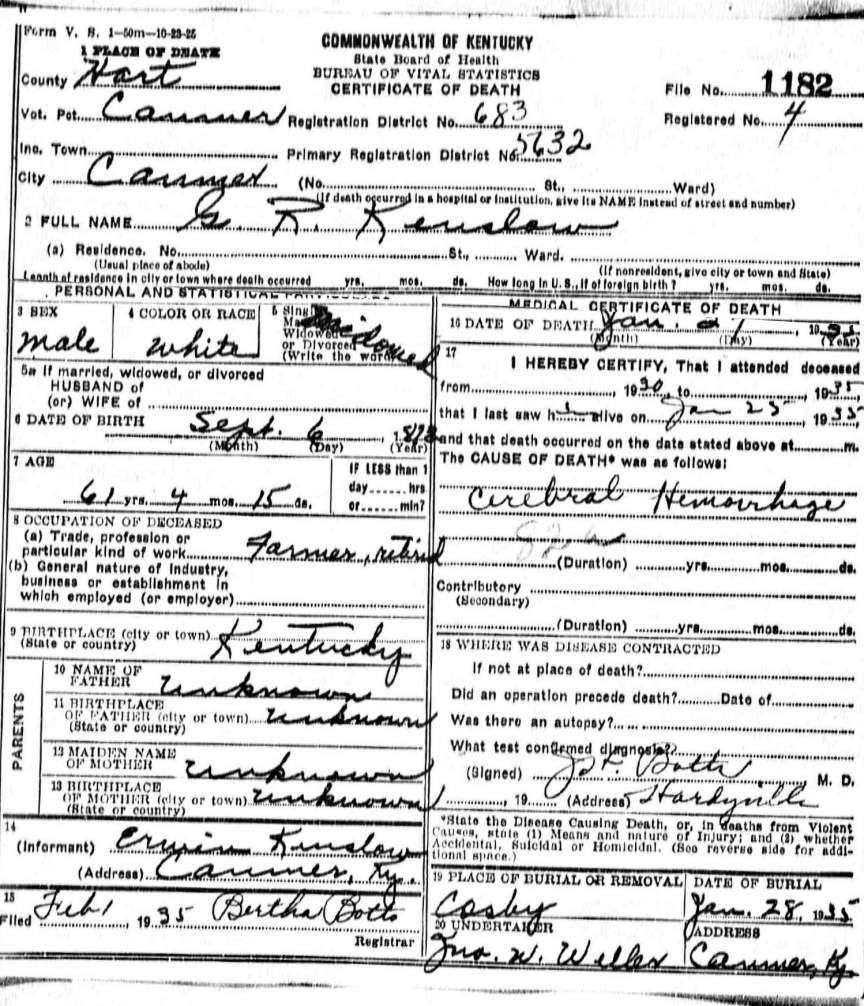 Form V. S. 1-50m-10-23-25
COMMONWEALTH OF KENTUCKY
State Board of Health
BUREAU OF VITAL STATISTICS
CERTIFICATE OF DEATH
File No. 1182
Registered No. 4
1 PLACE OF DEATH
County Hart
Vot. Pct. Canmer Registration District No. 683
Inc. Town Primary Registration District No. 5632
City Canmer (No. St., Ward)
(If death occurred in a hospital or institution, give its NAME instead of street and number)
2 FULL NAME G. R. Kenslow
(a) Residence. No. St., Ward.
(Usual place of abode) (If nonresident, give city or town and State)
Length of residence in city or town where death occurred yrs. mos. ds. How long in U. S., if of foreign birth? yrs. mos. ds.
PERSONAL AND STATISTICAL PARTICULARS
3 SEX male
4 COLOR OR RACE white
5 Widowed
or Divorced
(Write the word) Widowed
5a If married, widowed, or divorced
HUSBAND of
(or) WIFE of
6 DATE OF BIRTH Sept. 6
(Month) (Day) (Year)
7 AGE
61 yrs. 4 mos. 15 ds.
IF LESS than 1
day hrs
or min?
8 OCCUPATION OF DECEASED
(a) Trade, profession or
particular kind of work Farmer, retired
(b) General nature of Industry,
business or establishment in
which employed (or employer)
9 BIRTHPLACE (city or town) Kentucky
(State or country)
PARENTS
10 NAME OF
FATHER unknown
11 BIRTHPLACE
OF FATHER (city or town) unknown
(State or country)
12 MAIDEN NAME
OF MOTHER unknown
13 BIRTHPLACE
OF MOTHER (city or town) unknown
(State or country)
14
(Informant) Erwin Kenslow
(Address) Canmer, Ky.
15
Filed Feb 1 1935 Bertha Botts
Registrar
MEDICAL CERTIFICATE OF DEATH
16 DATE OF DEATH Jan. 21, 1935
(Month) (Day) (Year)
17
I HEREBY CERTIFY, That I attended deceased
from 1930, to 1935,
that I last saw h alive on Jan 25, 1935,
and that death occurred on the date stated above at m.
The CAUSE OF DEATH* was as follows:
Cerebral Hemorrhage
82a
(Duration) yrs. mos. ds.
Contributory
(Secondary)
(Duration) yrs. mos. ds.
18 WHERE WAS DISEASE CONTRACTED
If not at place of death?
Did an operation precede death? Date of
Was there an autopsy?
What test confirmed diagnosis?
(Signed) Botts, M. D.
, 19 (Address) Hardyville
*State the Disease Causing Death, or, in deaths from Violent
Causes, state (1) Means and nature of Injury; and (2) whether
Accidental, Suicidal or Homicidal. (See reverse side for addi-
tional space.)
19 PLACE OF BURIAL OR REMOVAL
Cosby
DATE OF BURIAL
Jan. 28, 1935
20 UNDERTAKER
Jno. W.
ADDRESS
Canmer, Ky